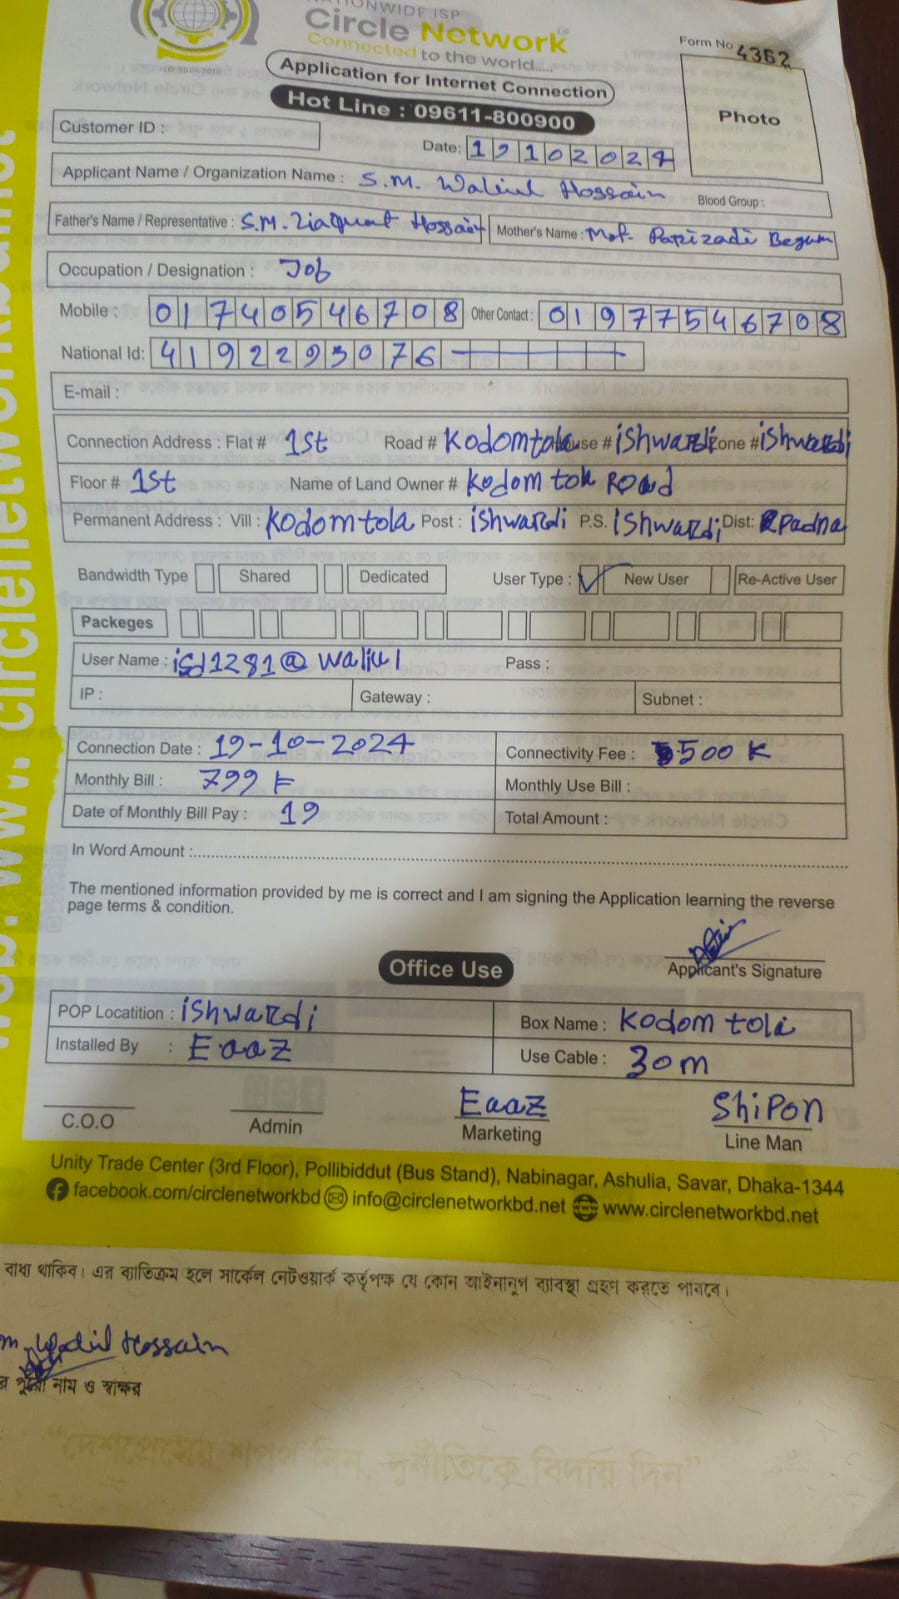 NATIONWIDE ISP
Circle Network
Connected to the world.....
Form No 4362
Application for Internet Connection
Hot Line : 09611-800900
Photo
Customer ID :
Date: 19102024
Applicant Name / Organization Name : S.M. Waliul Hossain Blood Group :
Father's Name / Representative : S.M. Liaquat Hossain Mother's Name : Mst. Parizadi Begum
Occupation / Designation : Job
Mobile : 01740546708 Other Contact : 01977546708
National Id: 4192293076
E-mail :
Connection Address : Flat # 1st Road # Kodomtola use # iShwardi one # iShwardi
Floor # 1St Name of Land Owner # Kodom tola Road
Permanent Address : Vill : Kodomtola Post : iShwardi P.S. iShwardi Dist: Padna
Bandwidth Type Shared Dedicated User Type : New User Re-Active User
Packeges
User Name : isd1281@waliul Pass :
IP : Gateway : Subnet :
Connection Date : 19-10-2024 Connectivity Fee : 500
Monthly Bill : 799 Monthly Use Bill :
Date of Monthly Bill Pay : 19 Total Amount :
In Word Amount :
The mentioned information provided by me is correct and I am signing the Application learning the reverse
page terms & condition.
Applicant's Signature
Office Use
POP Locatition : iShwardi Box Name : Kodom tola
Installed By : EaaZ Use Cable : 30m
EaaZ ShiPon
C.O.O Admin Marketing Line Man
Unity Trade Center (3rd Floor), Pollibiddut (Bus Stand), Nabinagar, Ashulia, Savar, Dhaka-1344
facebook.com/circlenetworkbd info@circlenetworkbd.net www.circlenetworkbd.net
বাধ্য থাকিব। এর ব্যতিক্রম হলে সার্কেল নেটওয়ার্ক কর্তৃপক্ষ যে কোন আইনানুগ ব্যবস্থা গ্রহণ করতে পারবে।
Hossain
নাম ও স্বাক্ষর
"দেশপ্রেমের শপথ নিন, দুর্নীতিকে বিদায় দিন"